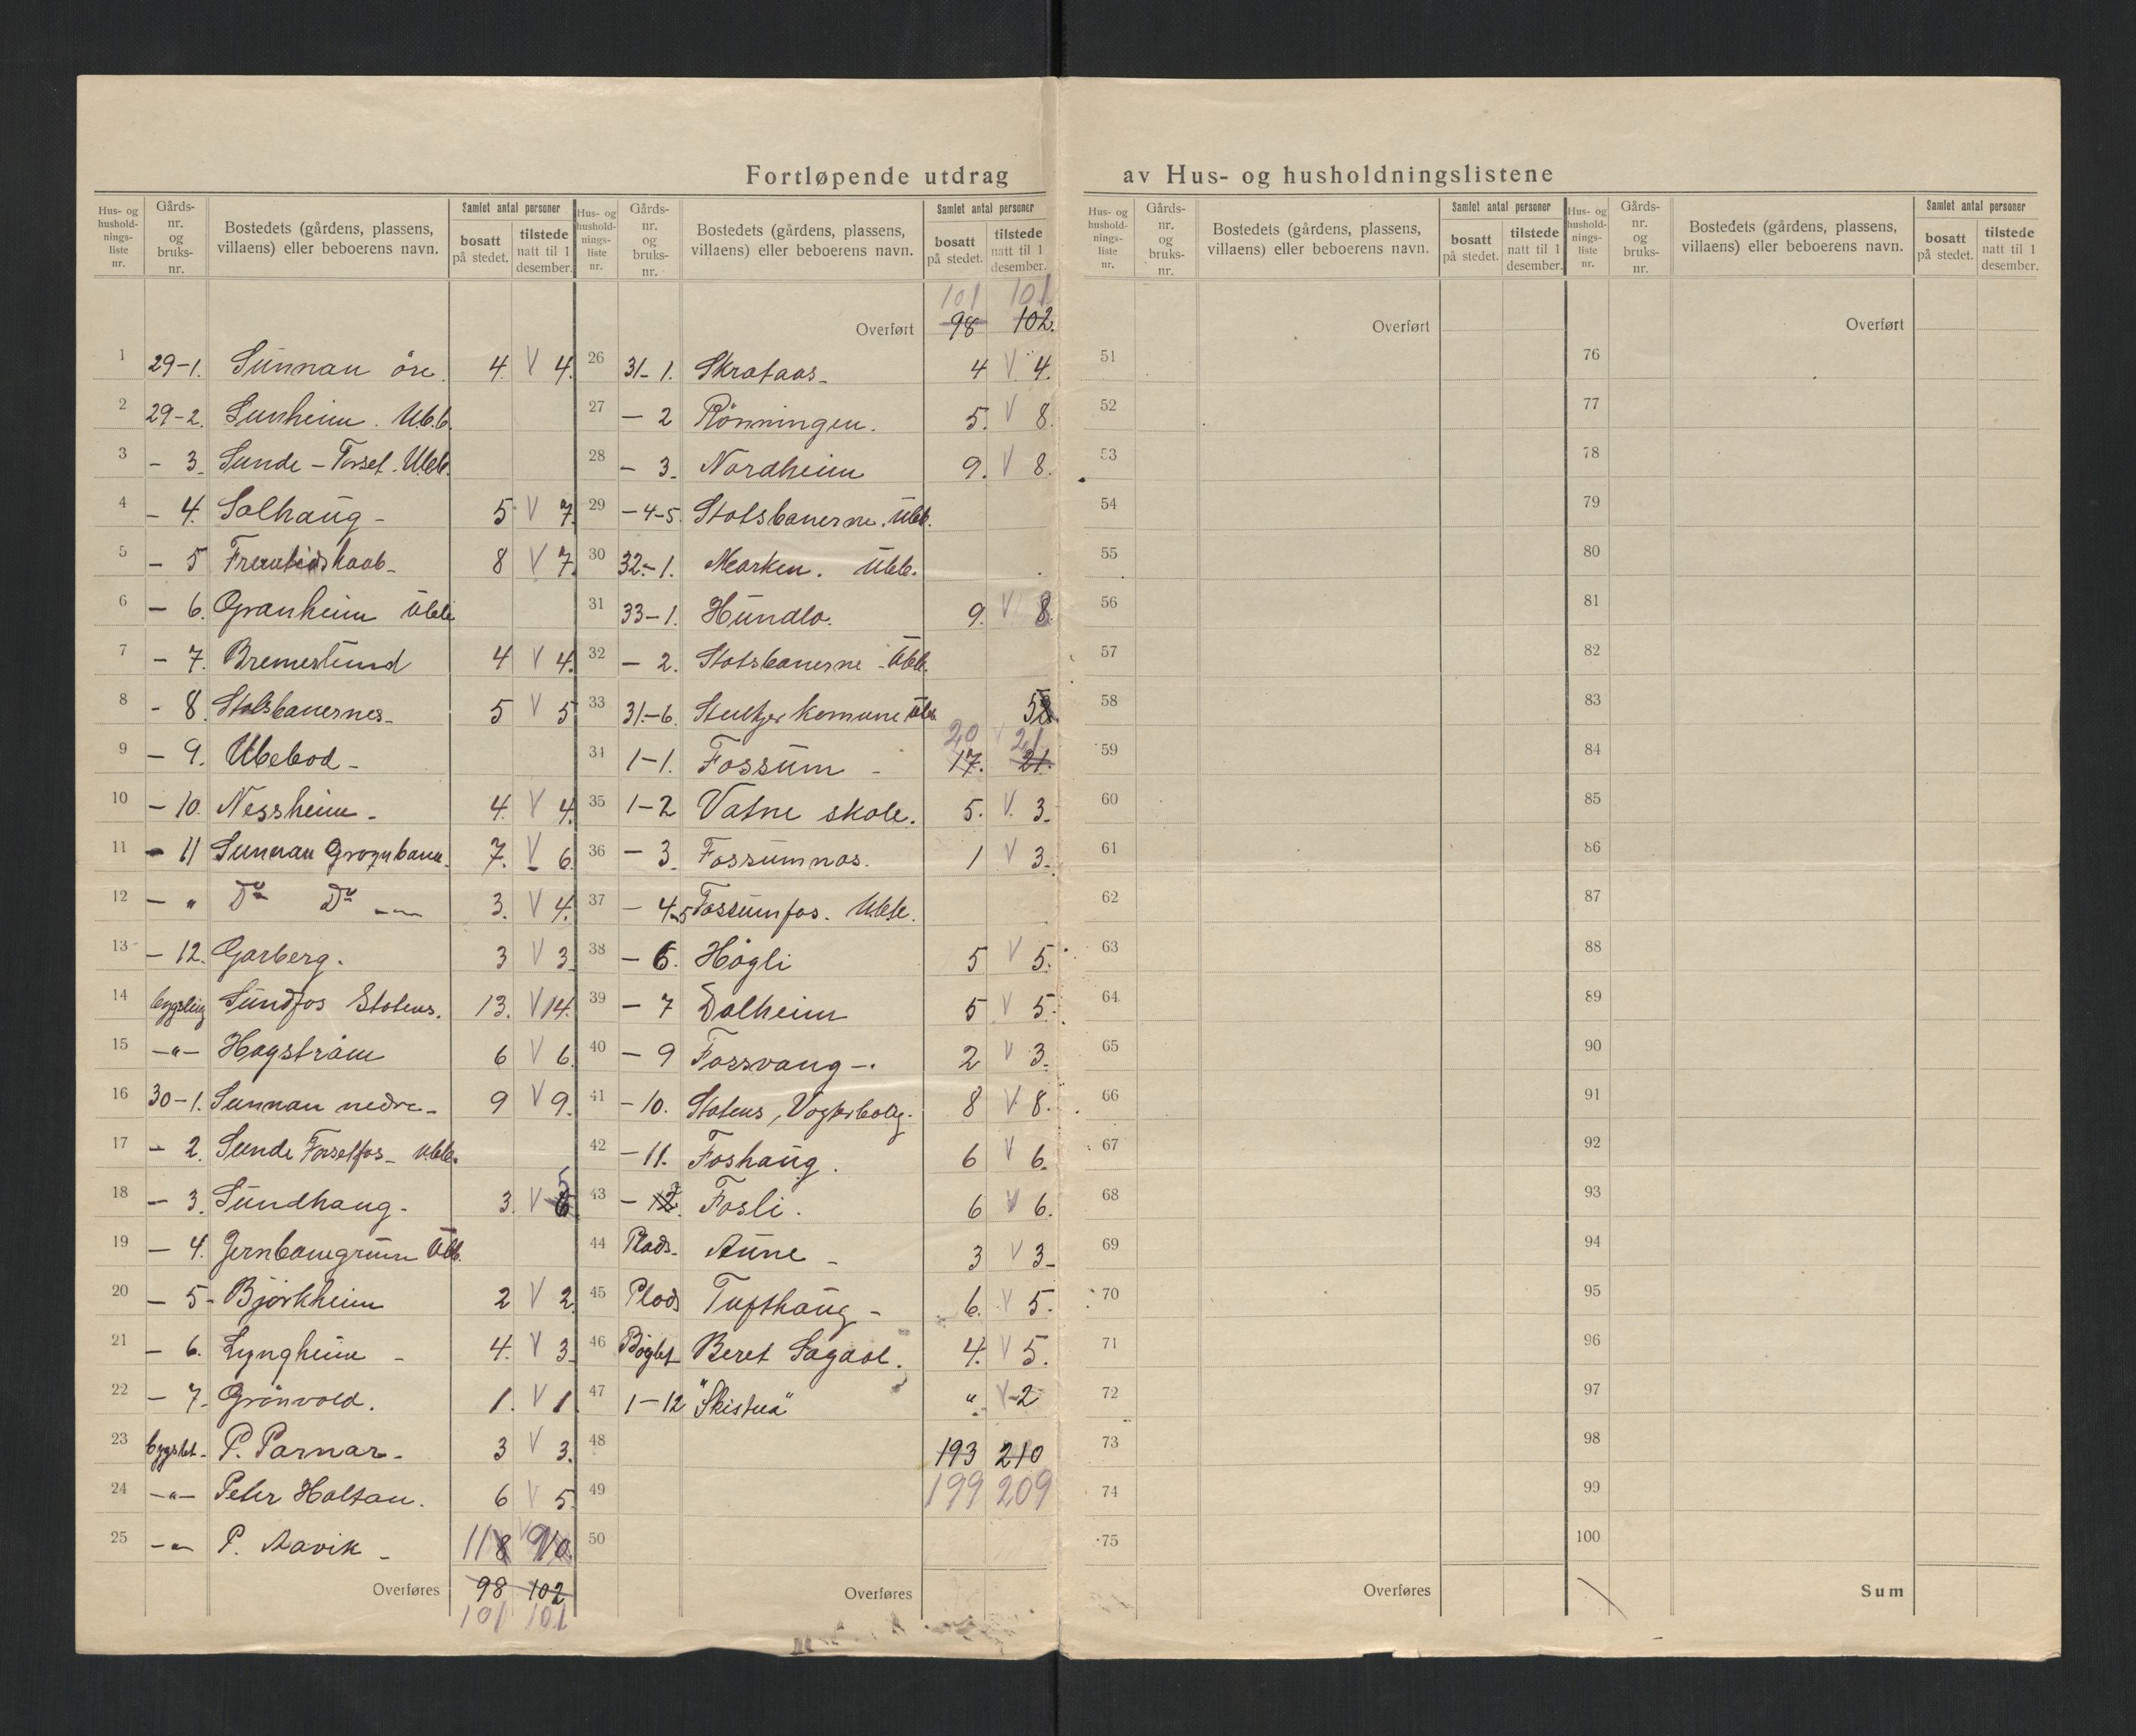 Fortløpende utdrag av Hus- og husholdningslistene
Hus- og husholdnings- liste nr. Gårds- nr. og bruks- nr. Bostedets (gårdens, plassens, villaens) eller beboerens navn. Samlet antal personer bosatt på stedet. tilstede natt til 1 desember.
1 29-1. Sunnan öre. 4. V 4.
2 29-2. Sunheim. Ubb.
3 - 3. Sunde - Forset. Ubb.
4 - 4. Solhaug - 5 V 7.
5 - 5 Fremtidshaab - 8 V 7.
6 - 6. Granheim Ubb.
7 - 7. Bremestund 4 V 4.
8 - 8. Statsbanernes - 5 V 5
9 - 9. Ubebod -
10 - 10. Nessheim - 4. V 4.
11 - 11 Sunnan 7. V 6.
12 - " Do Do 3. V 4.
13 - 12. Garberg. 3 V 3.
14 bygsling Sundfos Statens. 13. V 14.
15 -"- Hagstrøm 6 V 6.
16 30-1. Sunnan nedre - 9 V 9.
17 - 2. Sunde Forsetfos - Ubb.
18 - 3. Sundhaug - 3. V 6 5
19 - 4. Jernbanegrunn Ubb.
20 - 5 - Bjørkheim 2 V 2.
21 - 6. Lyngheim - 4. V 3.
22 - 7. Grønvold. 1. V 1.
23 bygslet - P. Parnar - 3 V 3.
24 -"- Peter Holtan. 6 V 5.
25 -"- P. Aavik -
Overføres 98 102
101 101
Hus- og husholdnings- liste nr. Gårds- nr. og bruks- nr. Bostedets (gårdens, plassens, villaens) eller beboerens navn. Samlet antal personer bosatt på stedet. tilstede natt til 1 desember.
101 101
Overført 98 102.
26 31-1. Skrataas - 4 V 4.
27 - 2 Rönningen. 5. V 8.
28 - 3. Nordheim 9. V 8.
29 - 4-5. Statsbanerne. Ubb.
30 32-1. Marken. Ubb.
31 33-1. Hundlo. 9. V 8.
32 - 2. Statsbanerne - Ubb.
33 31-6. komune Ubb.
20 V 21
34 1-1. Fossum - 17. 21.
35 1-2 Vatne skole. 5. V. 3.
36 - 3. Fossumnas. 1 V 3.
37 - 4-5 Fossumfos. Ubb.
38 - 6. Högli 5 V 5.
39 - 7 Dalheim 5 V 5.
40 - 9 Fossvang -. 2 V 3.
41 - 10. Statens, Vogterbolig. 8 V 8.
42 - 11. Foshaug. 6 V 6.
43 - Fosli. 6 V 6.
44 Plads. Aune - 3 V 3.
45 Plads Tufthaug - 6. V 5.
46 Bøglet Beret Sagaol. 4. V 5.
47 1-12 "Skistua" " V 2
48 193 210
49 199 209
50
Overføres
Hus- og husholdnings- liste nr. Gårds- nr. og bruks- nr. Bostedets (gårdens, plassens, villaens) eller beboerens navn. Samlet antal personer bosatt på stedet. tilstede natt til 1 desember.
Overført
51
52
53
54
55
56
57
58
59
60
61
62
63
64
65
66
67
68
69
70
71
72
73
74
75
Overføres
Hus- og husholdnings- liste nr. Gårds- nr. og bruks- nr. Bostedets (gårdens, plassens, villaens) eller beboerens navn. Samlet antal personer bosatt på stedet. tilstede natt til 1 desember.
Overført
76
77
78
79
80
81
82
83
84
85
86
87
88
89
90
91
92
93
94
95
96
97
98
99
100
Sum